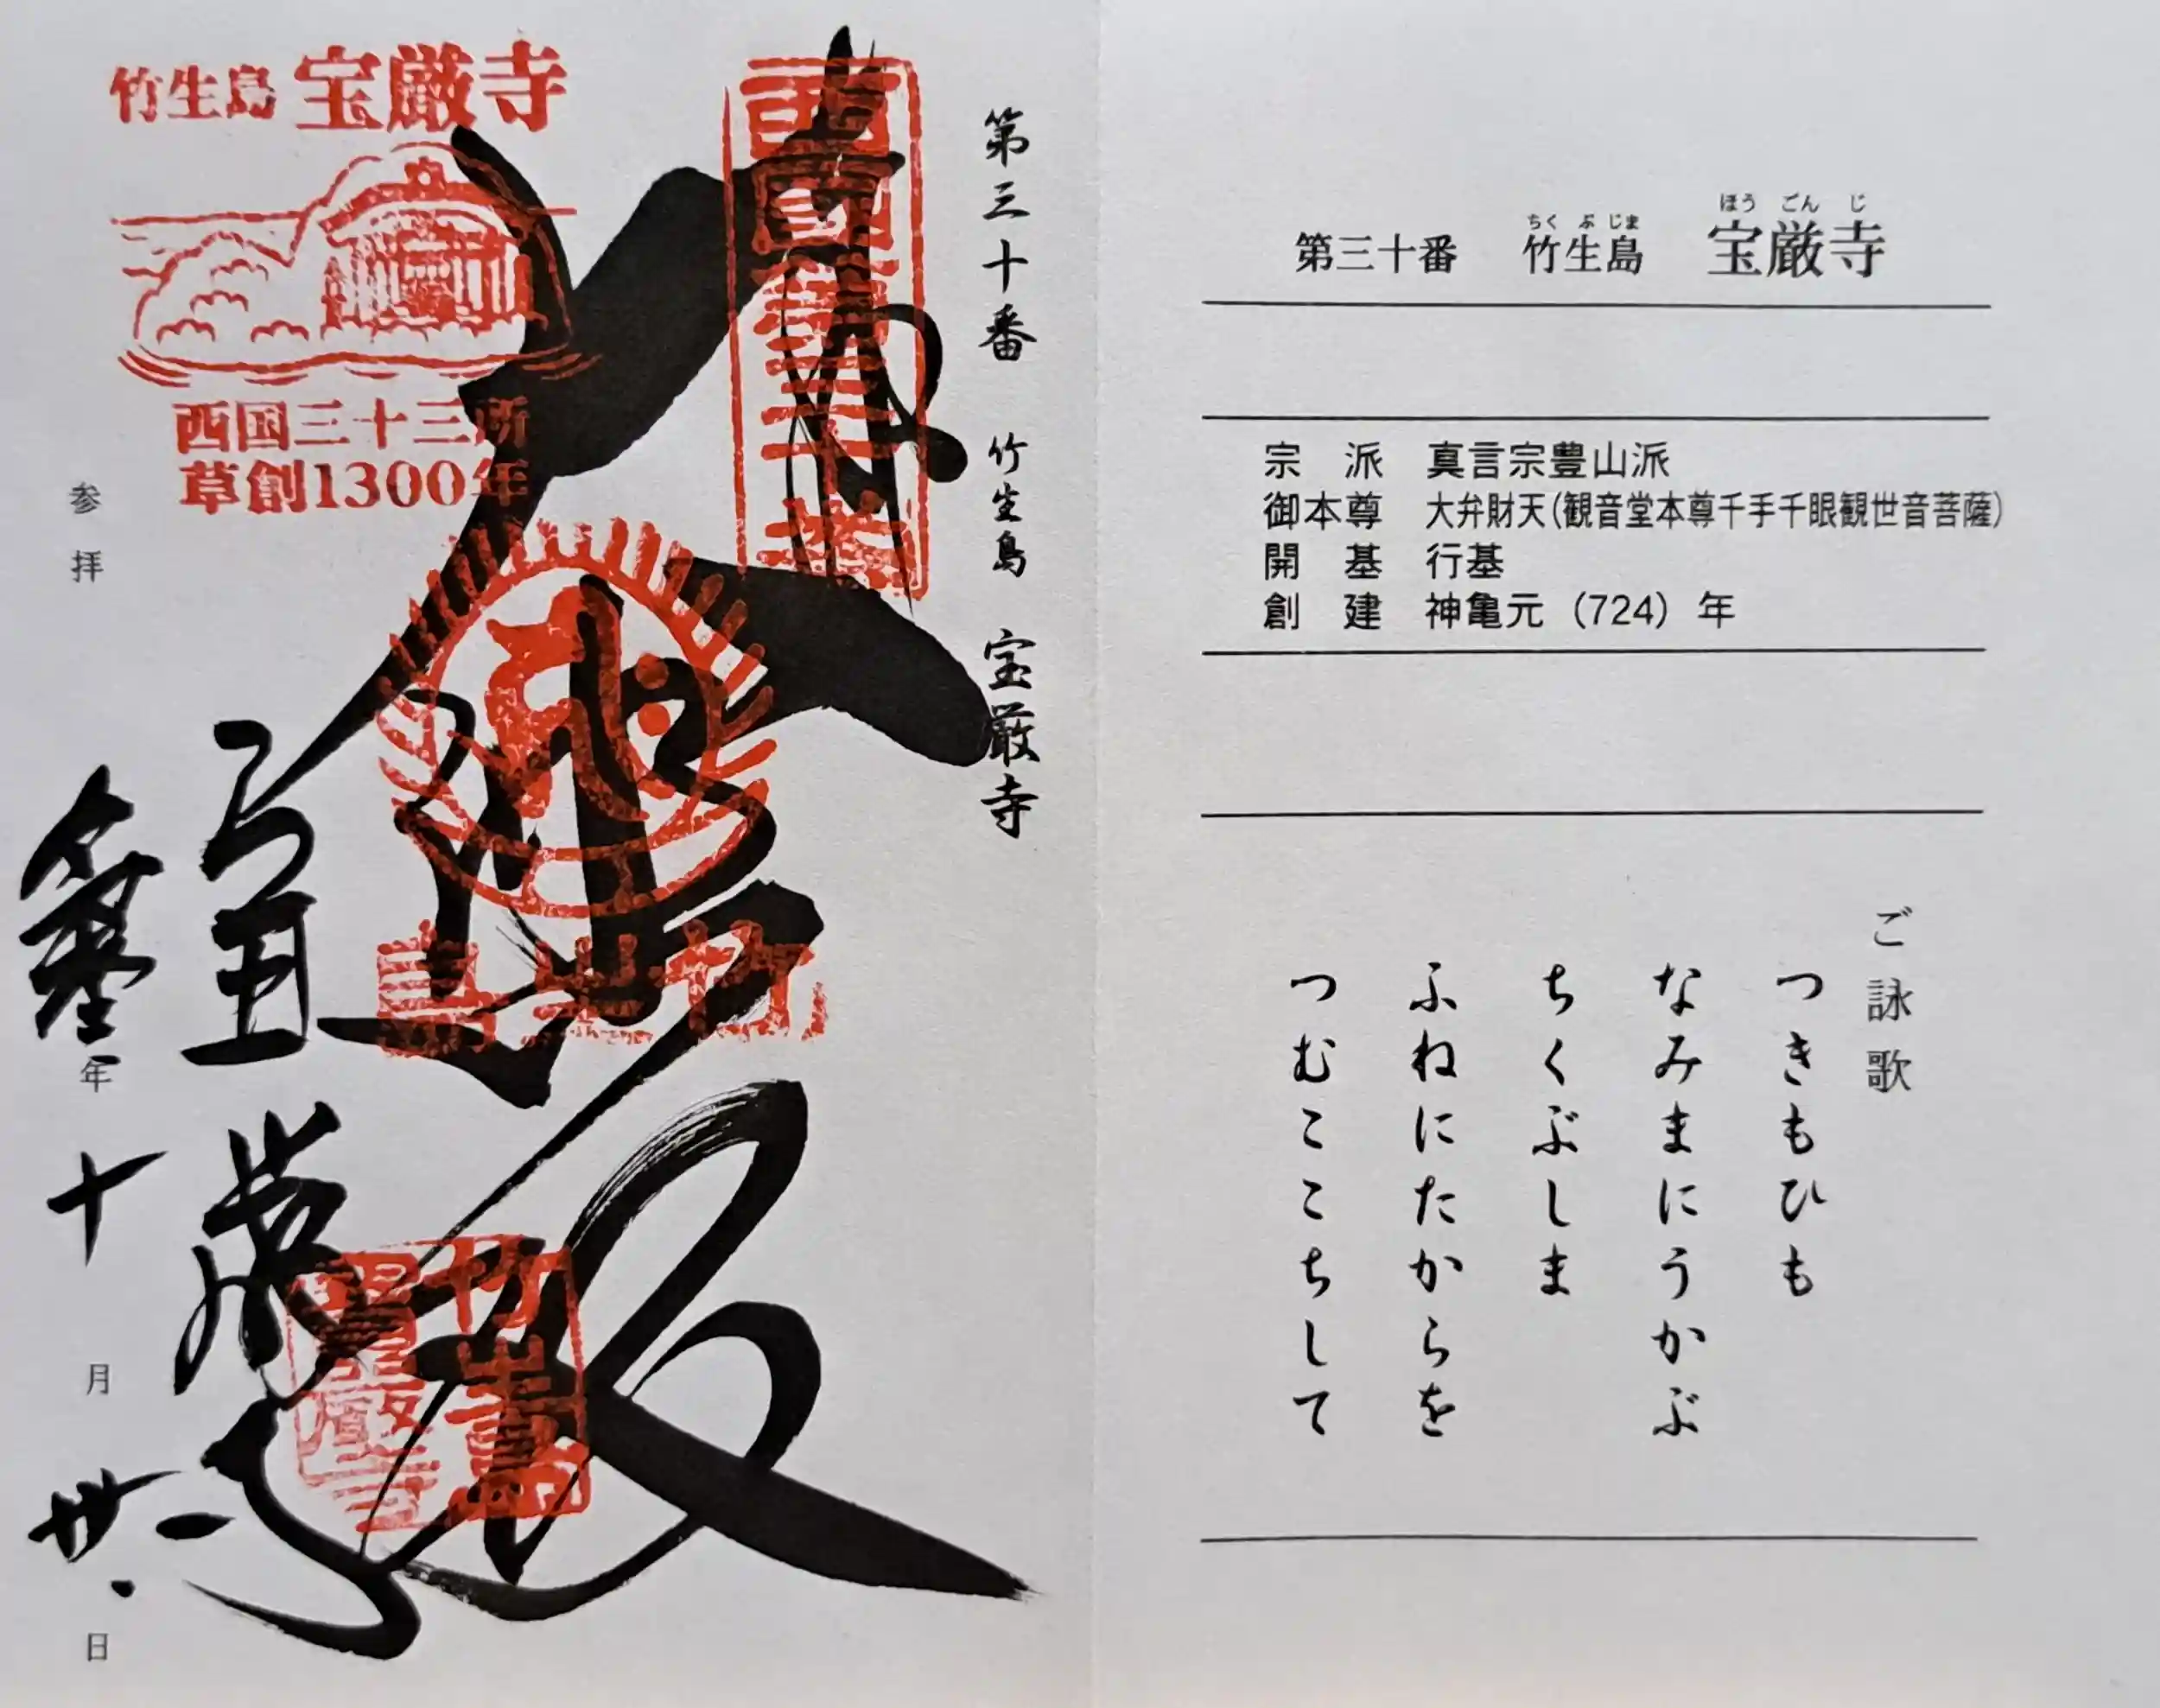 第三十番 竹生島 宝厳寺
竹生島 宝厳寺
西国三十三所
草創1300年
西国第三十番
奉拝
大悲殿
竹生島
宝厳寺
参拝
年
十
月
卅一
日
ほう ごん じ
ちく ぶ じま
第三十番 竹生島 宝厳寺
宗 派 真言宗豊山派
御本尊 大弁財天(観音堂本尊千手千眼観世音菩薩)
開 基 行基
創 建 神亀元(724)年
ご詠歌
つきもひも
なみまにうかぶ
ちくぶしま
ふねにたからを
つむここちして